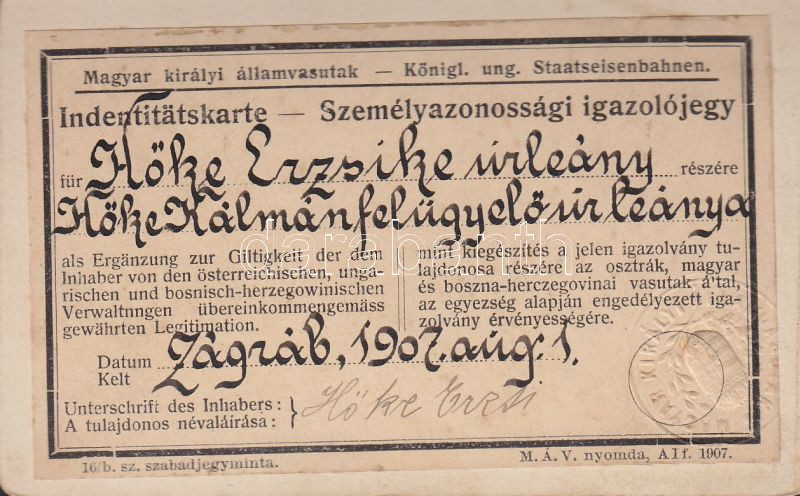 Magyar királyi államvasutak — Königl. ung. Staatseisenbahnen.
Indentitätskarte — Személyazonossági igazolójegy
für Hőke Erzsike úrleány részére
Hőke Kálmán felügyelő úr leánya
als Ergänzung zur Giltigkeit der dem
Inhaber von den österreichischen, unga-
rischen und bosnisch-herzegowinischen
Verwaltnngen übereinkommengemäss
gewährten Legitimation.
mint kiegészítés a jelen igazolvány tu-
lajdonosa részére az osztrák, magyar
és boszna-herczegovinai vasutak által,
az egyezség alapján engedélyezett iga-
zolvány érvényességére.
Datum
Kelt
Zágráb, 1907. aug. 1.
Unterschrift des Inhabers:
A tulajdonos névaláírása:
Hőke Erzsi
16/b. sz. szabadjegyminta.
M. Á. V. nyomda, Alf. 1907.
darabanth